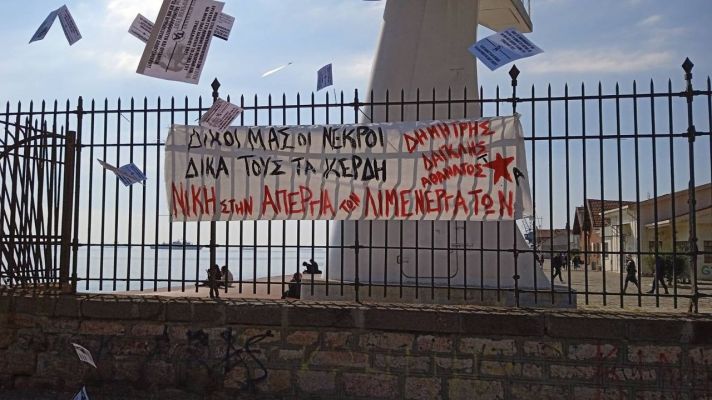 ΔΙΚΟΙ ΜΑΣ ΟΙ ΝΕΚΡΟΙ
ΔΙΚΑ ΤΟΥΣ ΤΑ ΚΕΡΔΗ
ΝΙΚΗ ΣΤΗΝ ΑΠΕΡΓΙΑ ΤΩΝ ΛΙΜΕΝΕΡΓΑΤΩΝ
ΔΗΜΗΤΡΗΣ
ΔΑΓΚΛΗΣ
ΑΘΑΝΑΤΟΣ